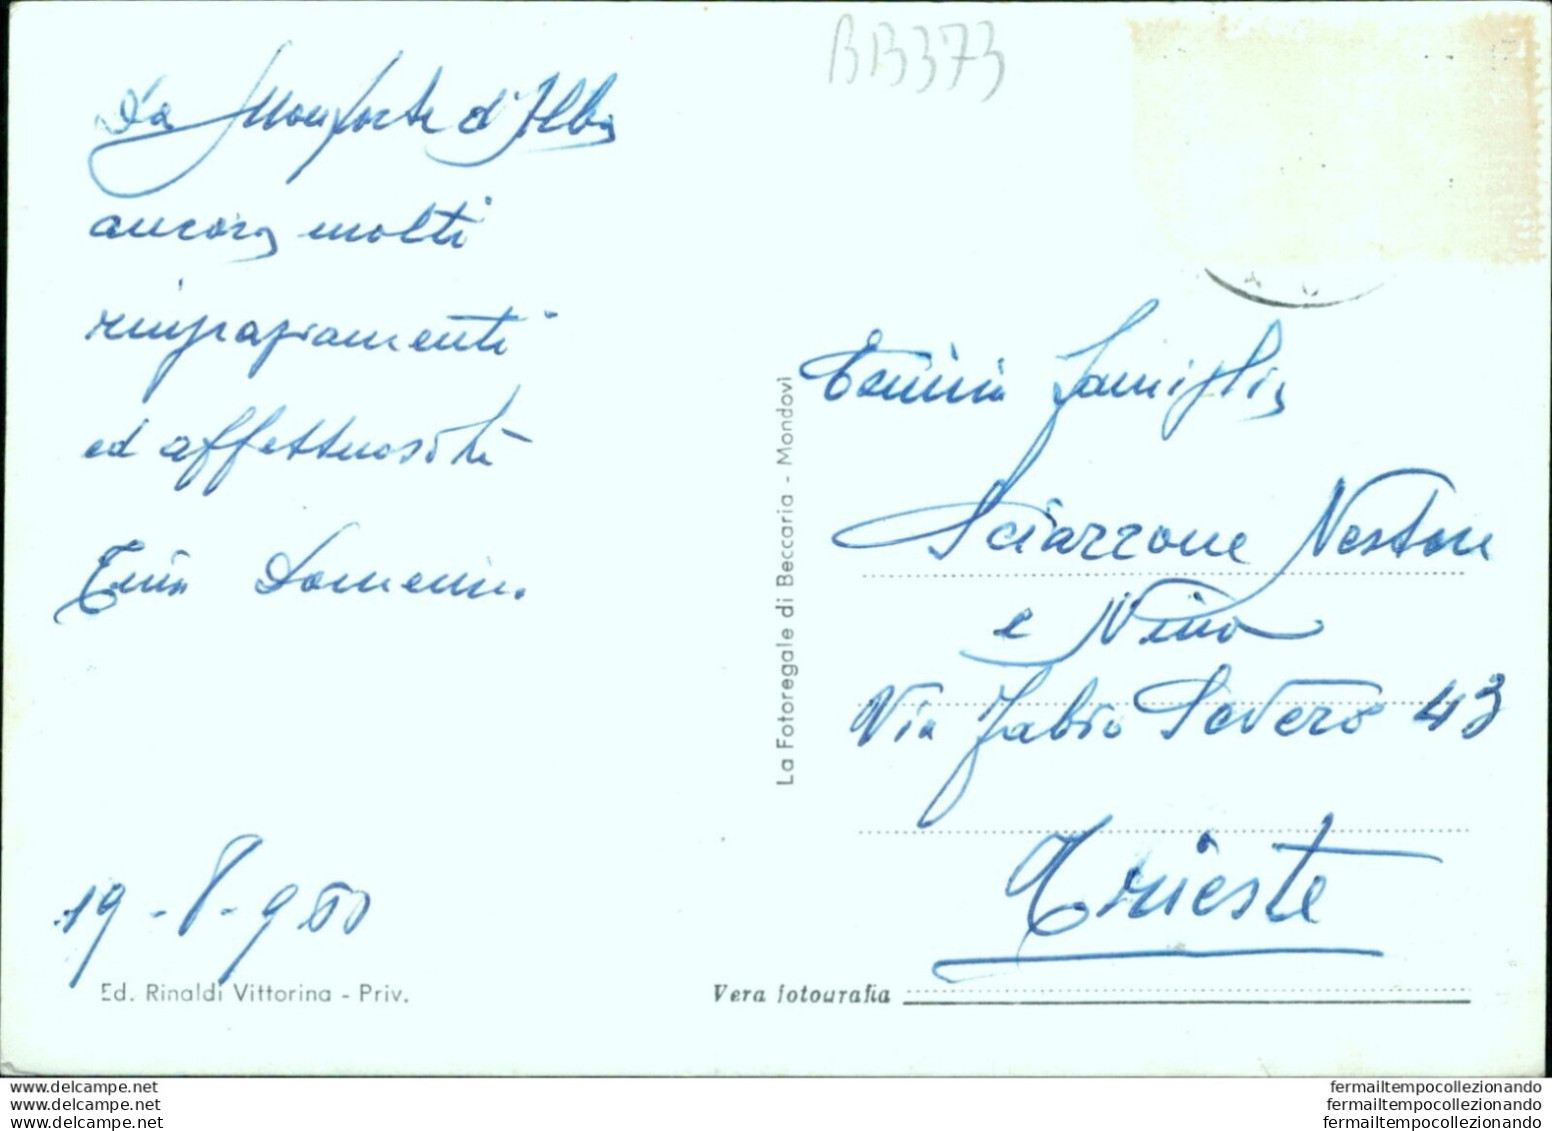 BB373
Da Monforte d'Alba
ancora molti
ringraziamenti
ed affettuosità
Domenico
19-8-960
Ed. Rinaldi Vittorina - Priv.
La Fotoregale di Beccaria - Mondovì
famiglia
Sciarrone Nestore
e Nina
Via Fabio Severo 43
Trieste
Vera fotografia
delcampe.net
delcampe.net
delcampe.net
fermailtempocollezionando
fermailtempocollezionando
fermailtempocollezionando